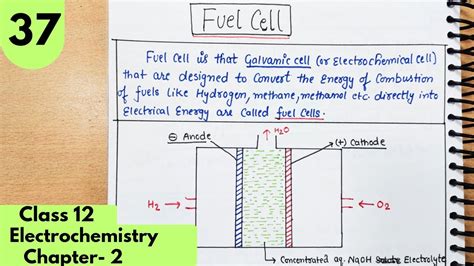 37
Fuel Cell
Fuel Cell is that Galvanic cell (or Electrochemical Cell)
that are designed to Convert the Energy of Combustion
of fuels like Hydrogen, methane, methanol etc. directly into
Electrical Energy are Called fuel Cells.
⊖ Anode
H2O
(+) Cathode
H2
O2
Class 12
Electrochemistry
Chapter- 2
Concentrated aq. NaOH Electrolyte